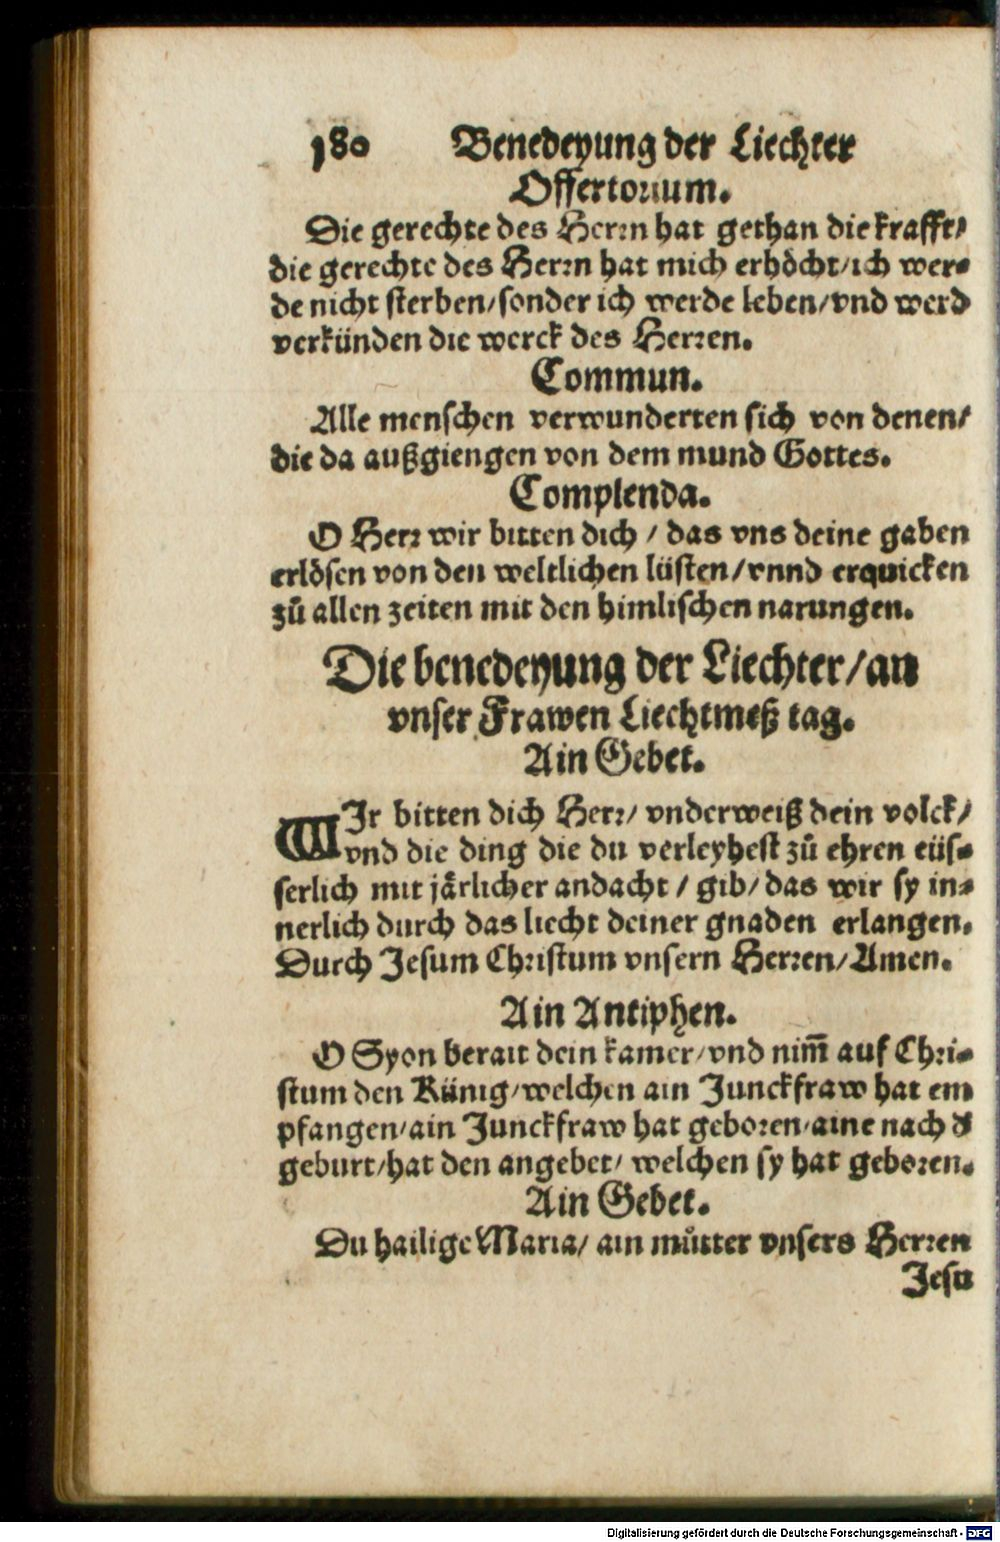 180 Benedeyung der Liechter
Offertorium.
Die gerechte des Herrn hat gethan die krafft/
die gerechte des Herrn hat mich erhöcht/ich wer-
de nicht sterben/sonder ich werde leben/vnd werd
verkünden die werck des Herren.
Commun.
Alle menschen verwunderten sich von denen/
die da außgiengen von dem mund Gottes.
Complenda.
O Herr wir bitten dich / das vns deine gaben
erlösen von den weltlichen lüsten/vnnd erquicken
zů allen zeiten mit den himlischen narungen.
Die benedeyung der Liechter/an
vnser Frawen Liechtmeß tag.
Ain Gebet.
WIr bitten dich Herr/ vnderweiß dein volck/
vnd die ding die du verleyhest zů ehren eüs-
serlich mit järlicher andacht / gib/ das wir sy in-
nerlich durch das liecht deiner gnaden erlangen.
Durch Jesum Christum vnsern Herren/Amen.
Ain Antiphen.
O Syon berait dein kamer/vnd nim̃ auf Chri-
stum den Künig/welchen ain Junckfraw hat em
pfangen/ain Junckfraw hat geboren/aine nach d̕
geburt/hat den angebet/ welchen sy hat geboren.
Ain Gebet.
Du hailige Maria/ ain můtter vnsers Herren
Jesu
Digitalisierung gefördert durch die Deutsche Forschungsgemeinschaft - DFG